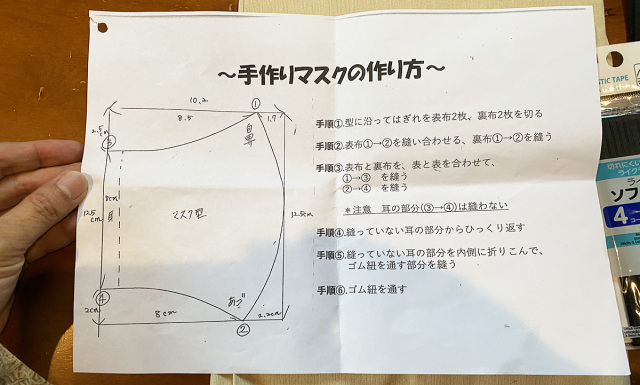 ～手作りマスクの作り方～
10.2
①
8.5
1.9
2.5cm
③
鼻
手順①.型に沿ってはぎれを表布2枚、裏布2枚を切る
手順②.表布①→②を縫い合わせる、裏布①→②を縫う
手順③.表布と裏布を、表と表を合わせて、
①→③ を縫う
②→④ を縫う
＊注意 耳の部分(③→④)は縫わない
手順④.縫っていない耳の部分からひっくり返す
手順⑤.縫っていない耳の部分を内側に折りこんで、
ゴム紐を通す部分を縫う
手順⑥.ゴム紐を通す
8cm
12.5
cm
耳
マスク型
12.5cm
④
あご
2cm
8cm
②
2.2cm
STIC TAPE
切れにくい
ライク
ソフ
4
コー